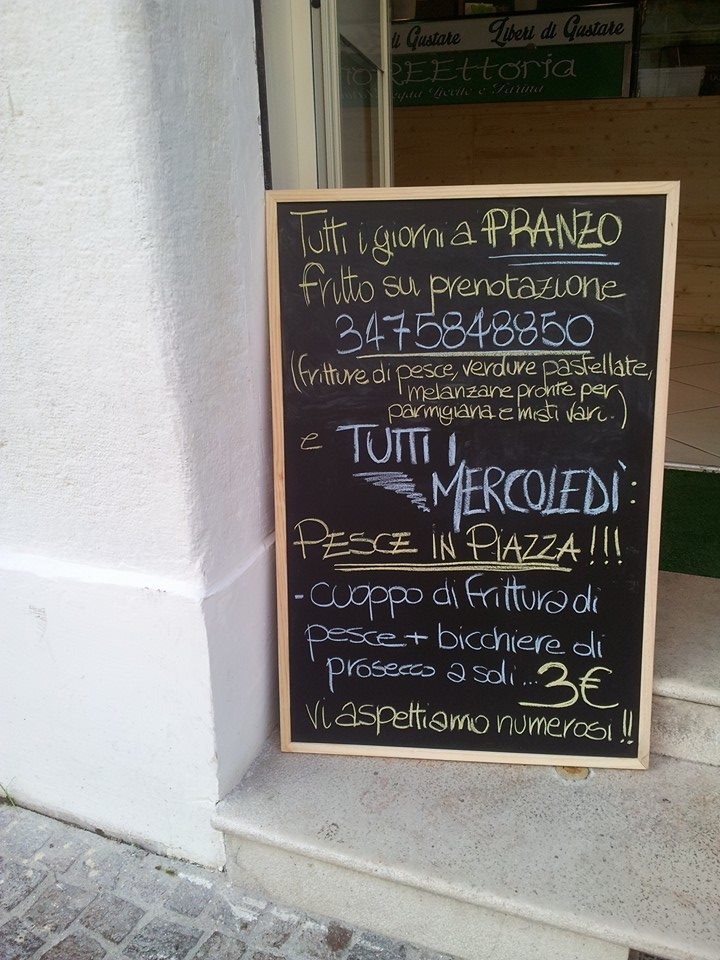 di Gustare Liberi di Gustare
REEttoria
Lievito e Farina
Tutti i giorni a PRANZO
fritto su prenotazione
3475848850
(fritture di pesce, verdure pastellate,
melanzane pronte per
parmigiana e misti vari..)
e TUTTI I
MERCOLEDÌ:
PESCE IN PIAZZA!!!
- cuoppo di frittura di
pesce + bicchiere di
prosecco a soli... 3€
Vi aspettiamo numerosi!!